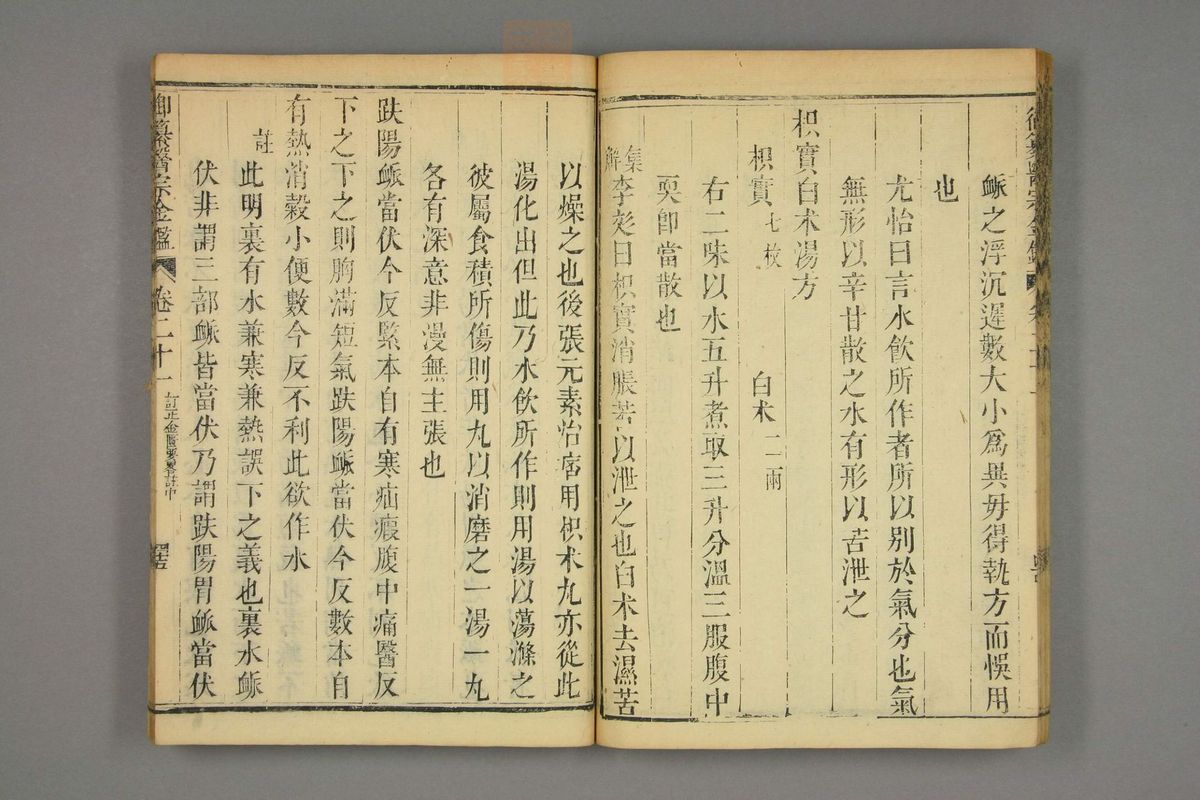 脈之浮沉遲數大小爲異毋得執方而悞用
也
尤怡曰言水飲所作者所以別於氣分也氣
無形以辛甘散之水有形以苦泄之
枳實白术湯方
枳實七枚 白术二兩
右二味以水五升煮取三升分溫三服腹中
耎卽當散也
集解 李彣曰枳實消脹苦以泄之也白术去濕苦
以燥之也後張元素治痞用枳术丸亦從此
湯化出但此乃水飲所作則用湯以蕩滌之
彼屬食積所傷則用丸以消磨之一湯一丸
各有深意非漫無主張也
趺陽脈當伏今反緊本自有寒疝瘕腹中痛醫反
下之下之則胸滿短氣趺陽脈當伏今反數本自
有熱消穀小便數今反不利此欲作水
註 此明裏有水兼寒兼熱誤下之義也裏水脈
伏非謂三部脈皆當伏乃謂趺陽胃脈當伏
御纂醫宗金鑑 卷二十一 訂正金匱要畧註中